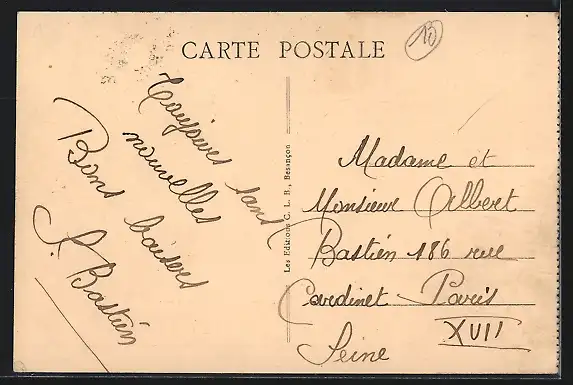 CARTE POSTALE
13
Toujours sans
nouvelles
Bons baisers
S. Bastien
Les Editions C. L. B., Besançon
Madame et
Monsieur Albert
Bastien 186 rue
Cardinet Paris
XVII
Seine